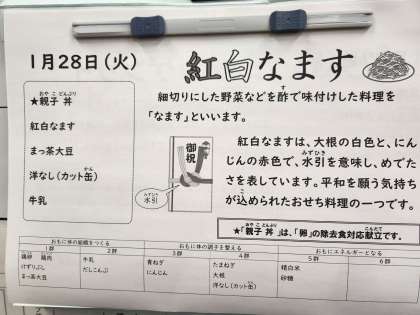 1月28日(火)
紅白なます
おや こ どんぶり
★親子 丼
紅白なます
まっ茶大豆
かん
洋なし(カット缶)
牛乳
す
細切りにした野菜などを酢で味付けした料理を
「なます」といいます。
御祝
みずひき
水引
紅白なますは、大根の白色と、にん
みずひき
じんの赤色で、水引を意味し、めでた
さを表しています。平和を願う気持ち
こ
が込められたおせち料理の一つです。
おや こ どんぶり
こんだて
★「親子 丼」は、「卵」の除去食対応献立です。
おもに体の組織をつくる
おもに体の調子を整える
おもにエネルギーとなる
1群 2群 3群 4群 5群 6群
鶏卵 鶏肉 牛乳 青ねぎ たまねぎ 精白米
けずりぶし だしこんぶ にんじん 大根 砂糖
まっ茶大豆 洋なし(カット缶)